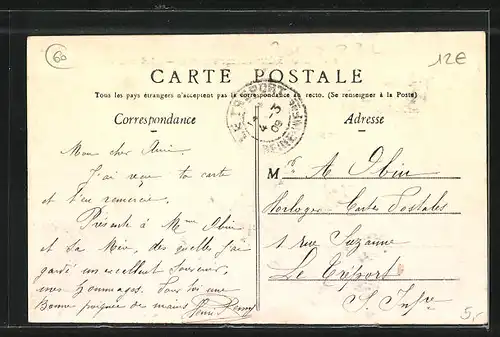 60
12€
CARTE POSTALE
Tous les pays étrangers n'acceptent pas la correspondance au recto. (Se renseigner à la Poste)
Correspondance
Adresse
LE TRÉPORT
4-3
09
SEINE-INFRE
Mon cher Ami
J'ai reçu ta carte
et t'en remercie.
Présente à Mme Obin
et ta Mère desquelle j'ai
gardé un excellent souvenir,
mes hommages. Pour toi une
Bonne poignée de mains Henri
Mr A Obin
Horloger-Cartes Postales
1 rue Suzanne
Le Tréport
S. Infre
5,-